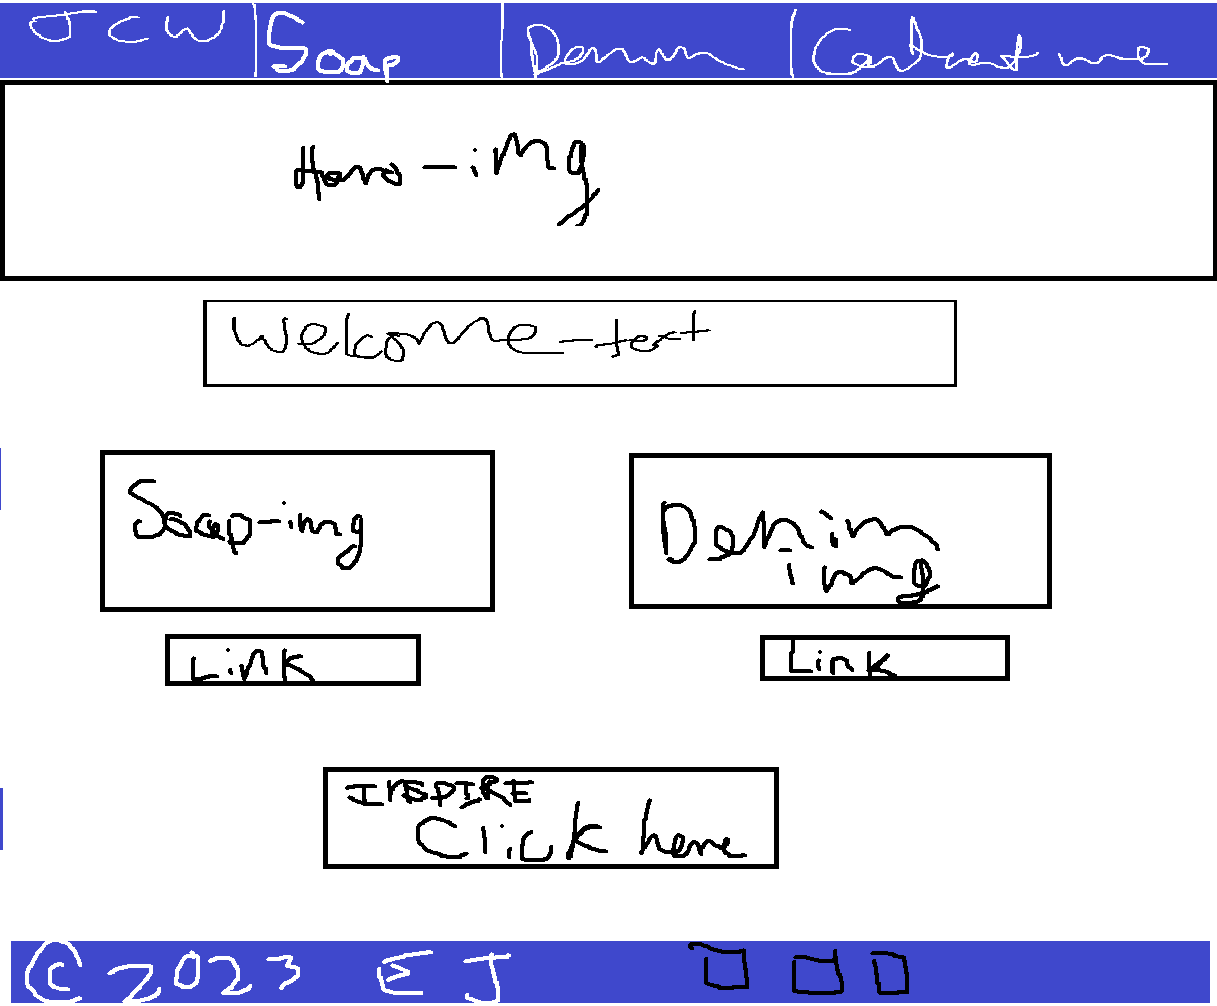 JCW Soap Denim Contact me
Hero-img
Welcome-text
Soap-img
Denim
img
Link
Link
INSPIRE
Click here
© 2023 EJ